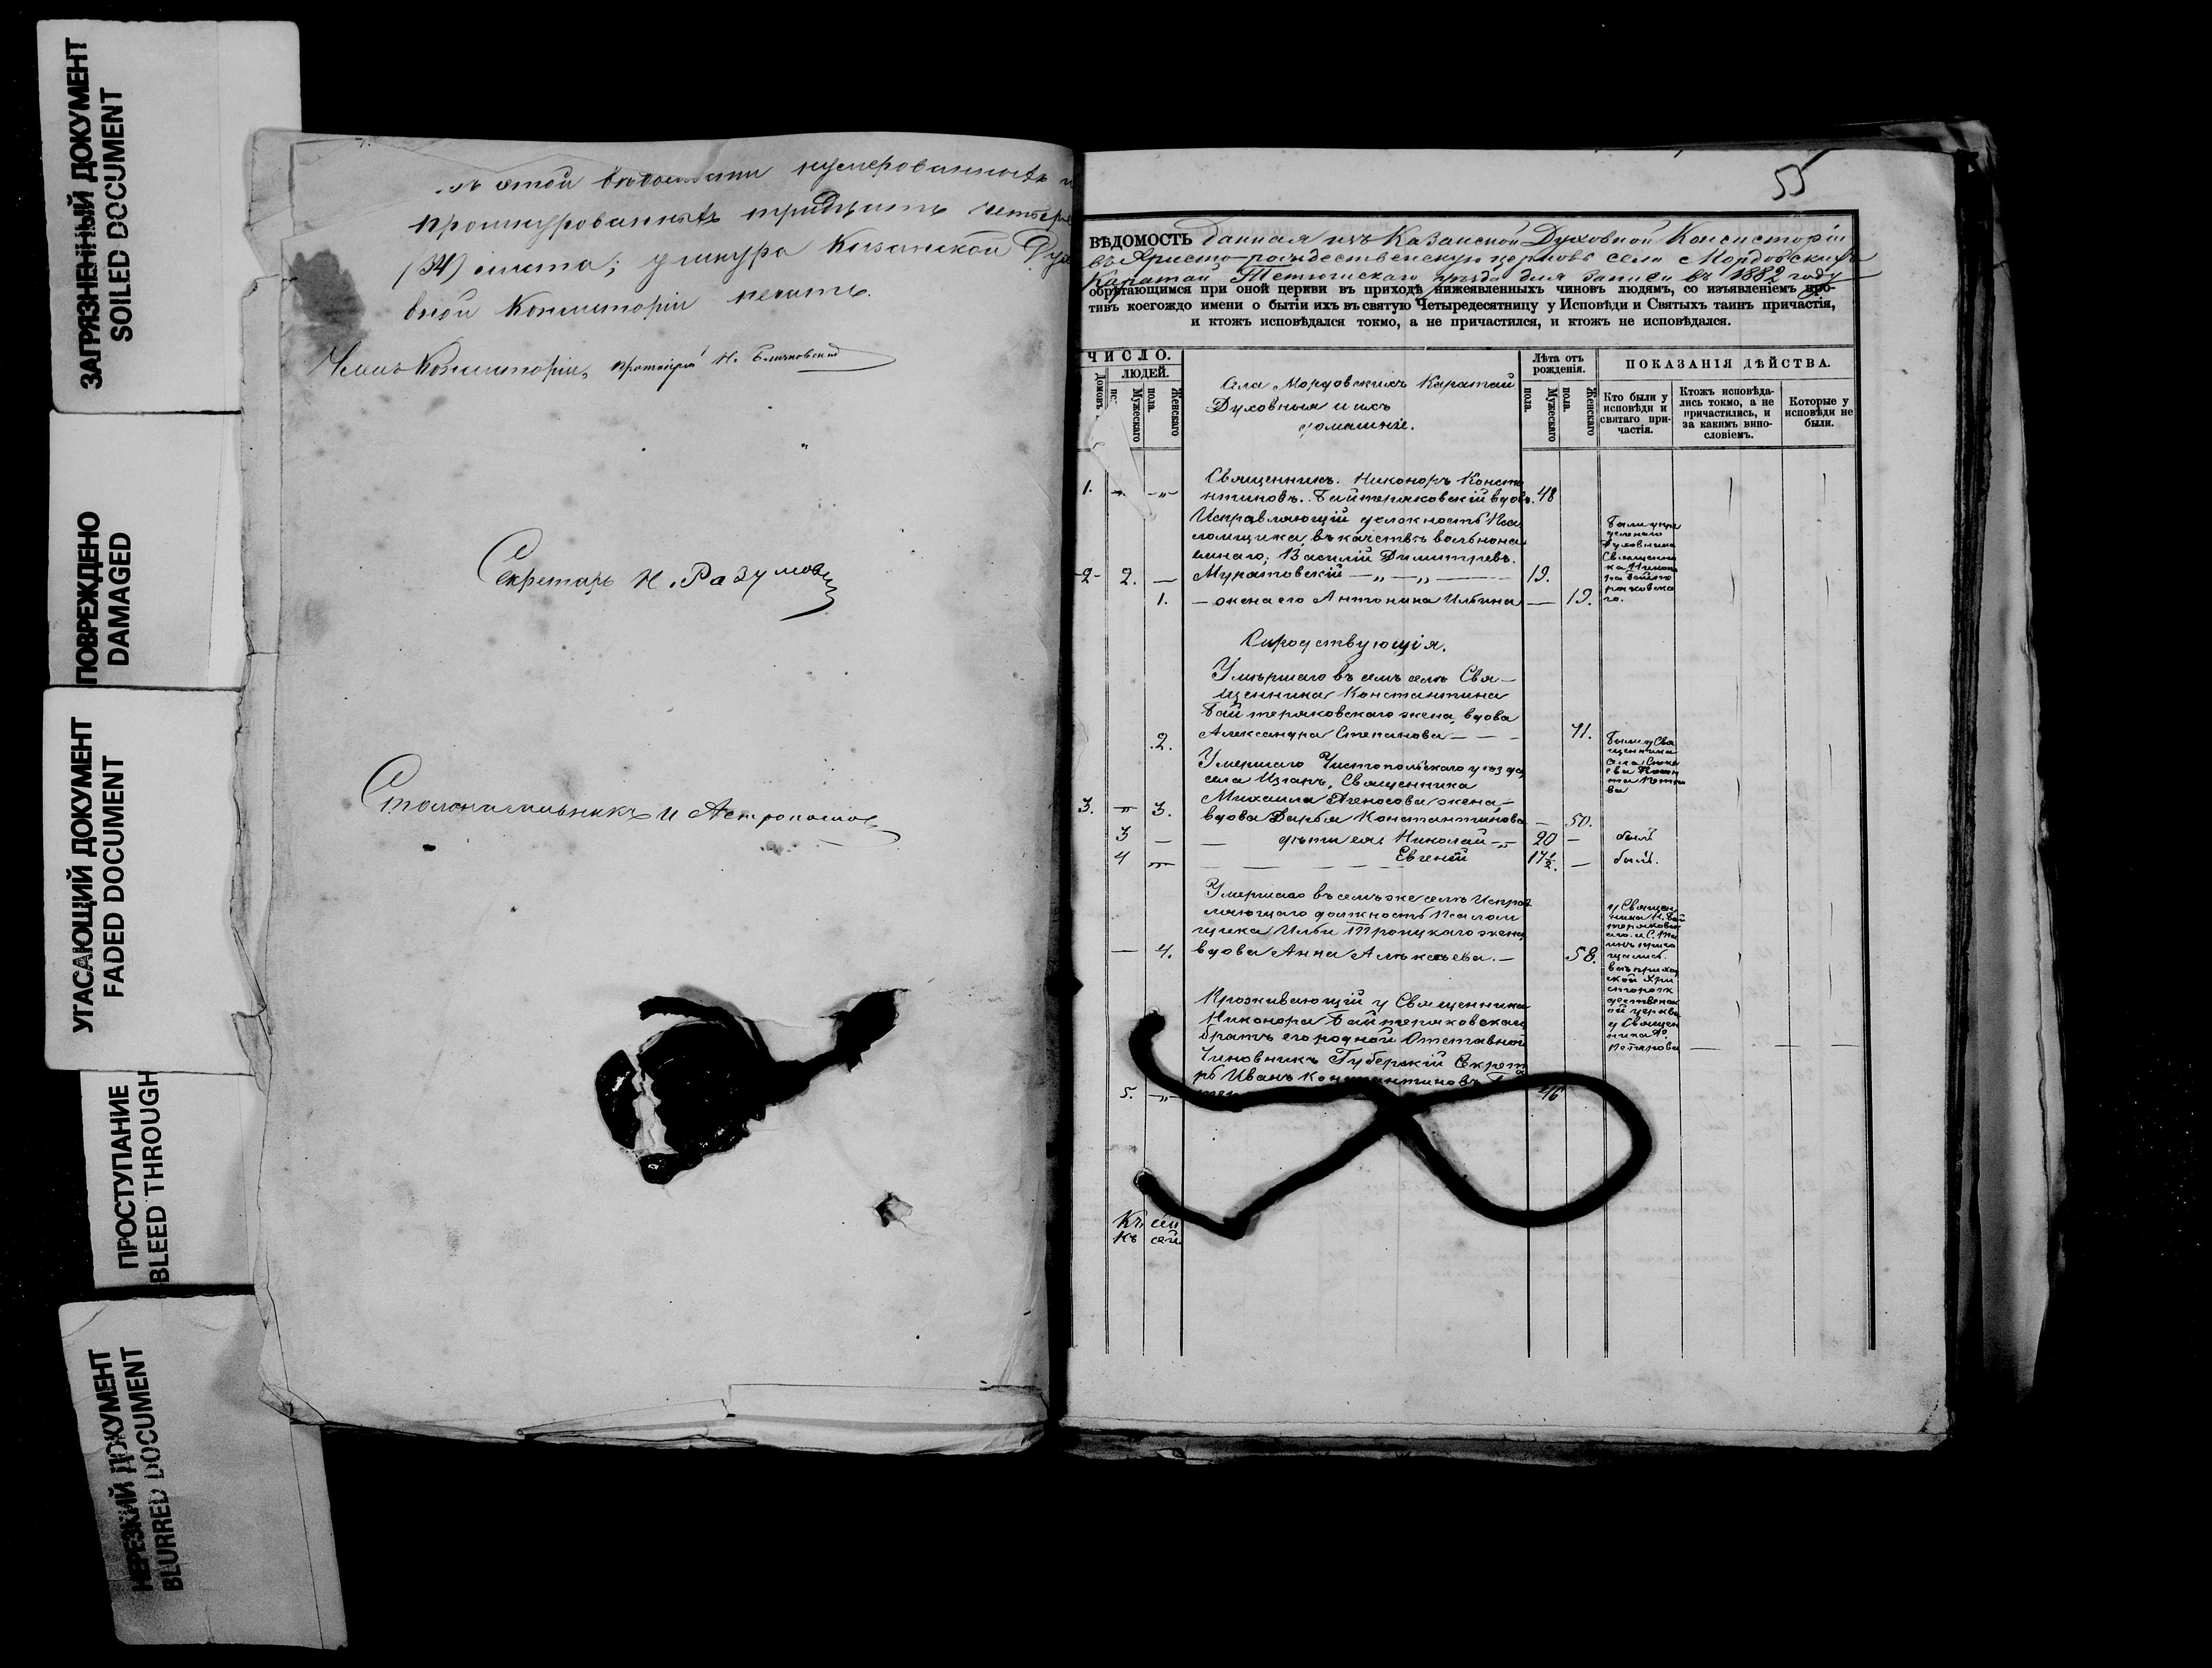 ЗАГРЯЗНЕННЫЙ ДОКУМЕНТ
SOILED DOCUMENT
ПОВРЕЖДЕНО
DAMAGED
УГАСАЮЩИЙ ДОКУМЕНТ
FADED DOCUMENT
ПРОСТУПАНИЕ
BLEED THROUGH
НЕРЕЗКИЙ ДОКУМЕНТ
BLURRED DOCUMENT
ъ этой вѣдомости нумерованныхъ и
прошнурованныхъ тридцать четыре
(34) листа; у шнура Казанской Духо
вной Консисторіи печать.
Членъ Консисторіи, Протоіерей Н.
Секретарь Н. Разумов
Столоначальникъ И
55
ВѢДОМОСТЬ данная изъ Казанской Духовной Консисторіи
въ Христо-рождественскую церковь села Мордовскихъ
Каратай Тетюшскаго уѣзда для записи въ 1882 году
обрѣтающимся при оной церкви въ приходѣ нижеявленныхъ чиновъ людямъ, со изъявленіемъ про-
тивъ коегождо имени о бытіи ихъ въ святую Четыредесятницу у Исповѣди и Святыхъ таинъ причастія,
и ктожъ исповѣдался токмо, а не причастился, и ктожъ не исповѣдался.
ЧИСЛО.
ЛЮДЕЙ.
Домовъ
Мужескаго
пола.
Женскаго
Села Мордовскихъ Каратай
Духовныя и ихъ
домашніе.
Лѣта отъ
рожденія.
пола.
Мужескаго
пола.
Женскаго
ПОКАЗАНІЯ ДѢЙСТВА.
Кто были у
исповѣди и
святаго при-
частія.
Ктожъ исповѣда-
лись токмо, а не
причастились, и
за какимъ вино-
словіемъ.
Которые у
исповѣди не
были.
Священникъ. Никоноръ Конста
1. нтиновъ. Байтеряковскій вдовъ. 48
Исправляющій должность Пса
ломщика, въ качествѣ вольнона
емнаго; Василій Димитріевъ.
2 2. — Муратовскій — „ — „ — 19.
1. — жена его Антонина Ильина — 19.
Духовника
Священни
ка Никоно
ра Байте
ряковска
го.
Сиродствующія.
Умершаго въ семъ селѣ Свя-
щенника Константина
Байтеряковскаго жена, вдова
2. Александра Степанова — — — 71.
Умершаго Чистопольскаго уѣзда,
села Изганъ, Священника
Михаила жена,—
3. „ 3. вдова Дарья Константинова — 50.
3 — — дѣти ея: Николай — „ 20 — былъ
4 „ — — — — Евгеній 17½. — былъ.
Были у Свя
щенника
села
Умершаго въ семъ же селѣ Исправ
ляющаго должность Псалом
щика Ильи Троицкаго жена,
— 4. вдова Анна Алексѣева. — 58.
у Священ
ника Н. Бай
теряковск
Проживающій у Священника
Никонора Байтеряковскаго
братъ его родной Отставной
Чиновникъ Губерскій Секрета
рь Иванъ Константиновъ
5. „ 46
въ приход
ской Хри
сторож
дественск
ой церкви
у Священ
ника
Къ сей
къ сей